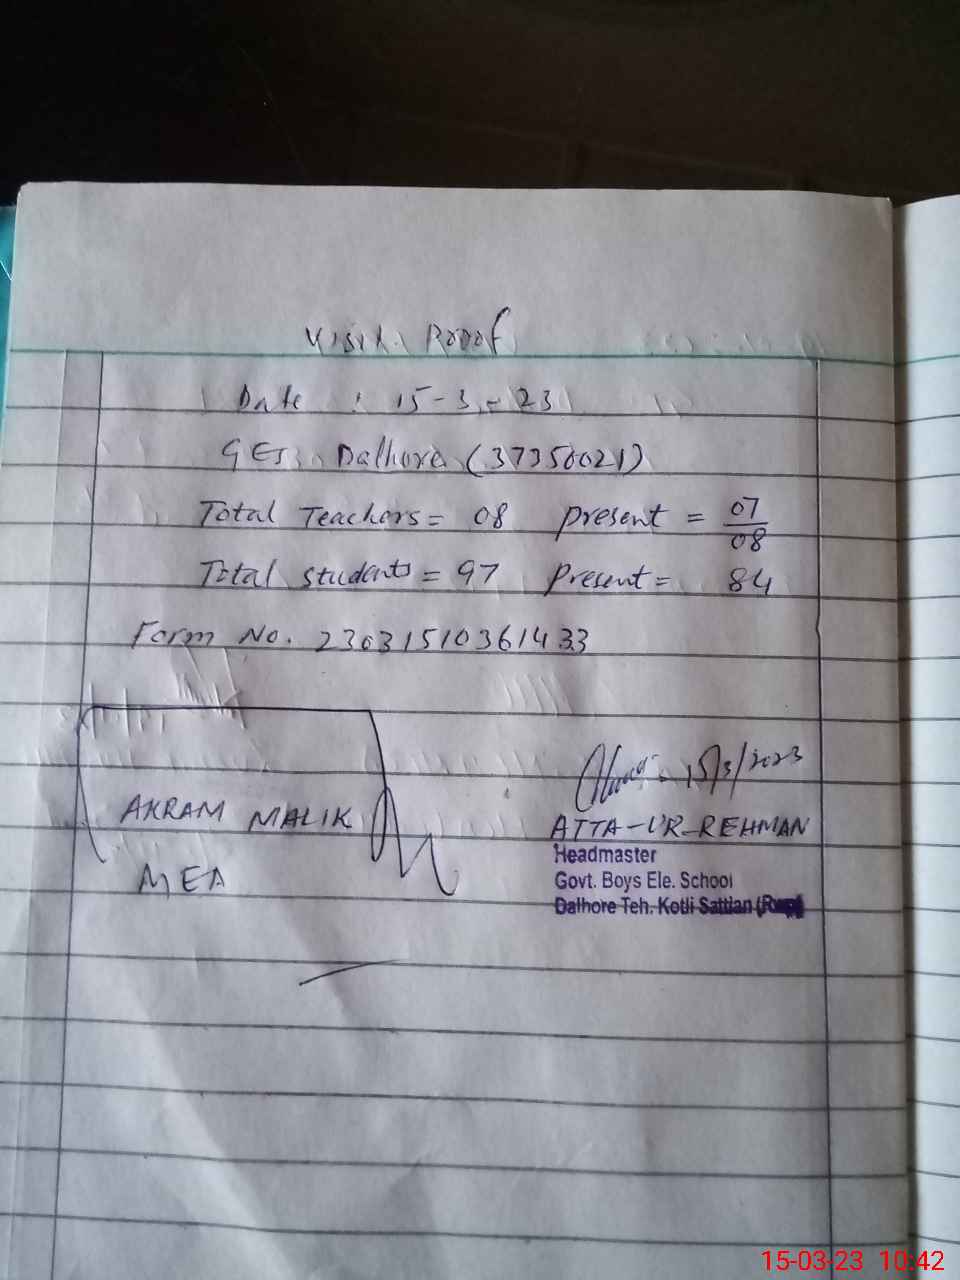 Visit Proof
Date : 15-3-23
GES Dalhore (37350021)
Total Teachers = 08 present = 07/08
Total students = 97 present = 84
Form No. 23031510361433
15/3/2023
AKRAM MALIK
ATTA-UR-REHMAN
MEA
Headmaster
Govt. Boys Ele. School
Dalhore Teh. Kotli Sattian
15-03-23 10:42